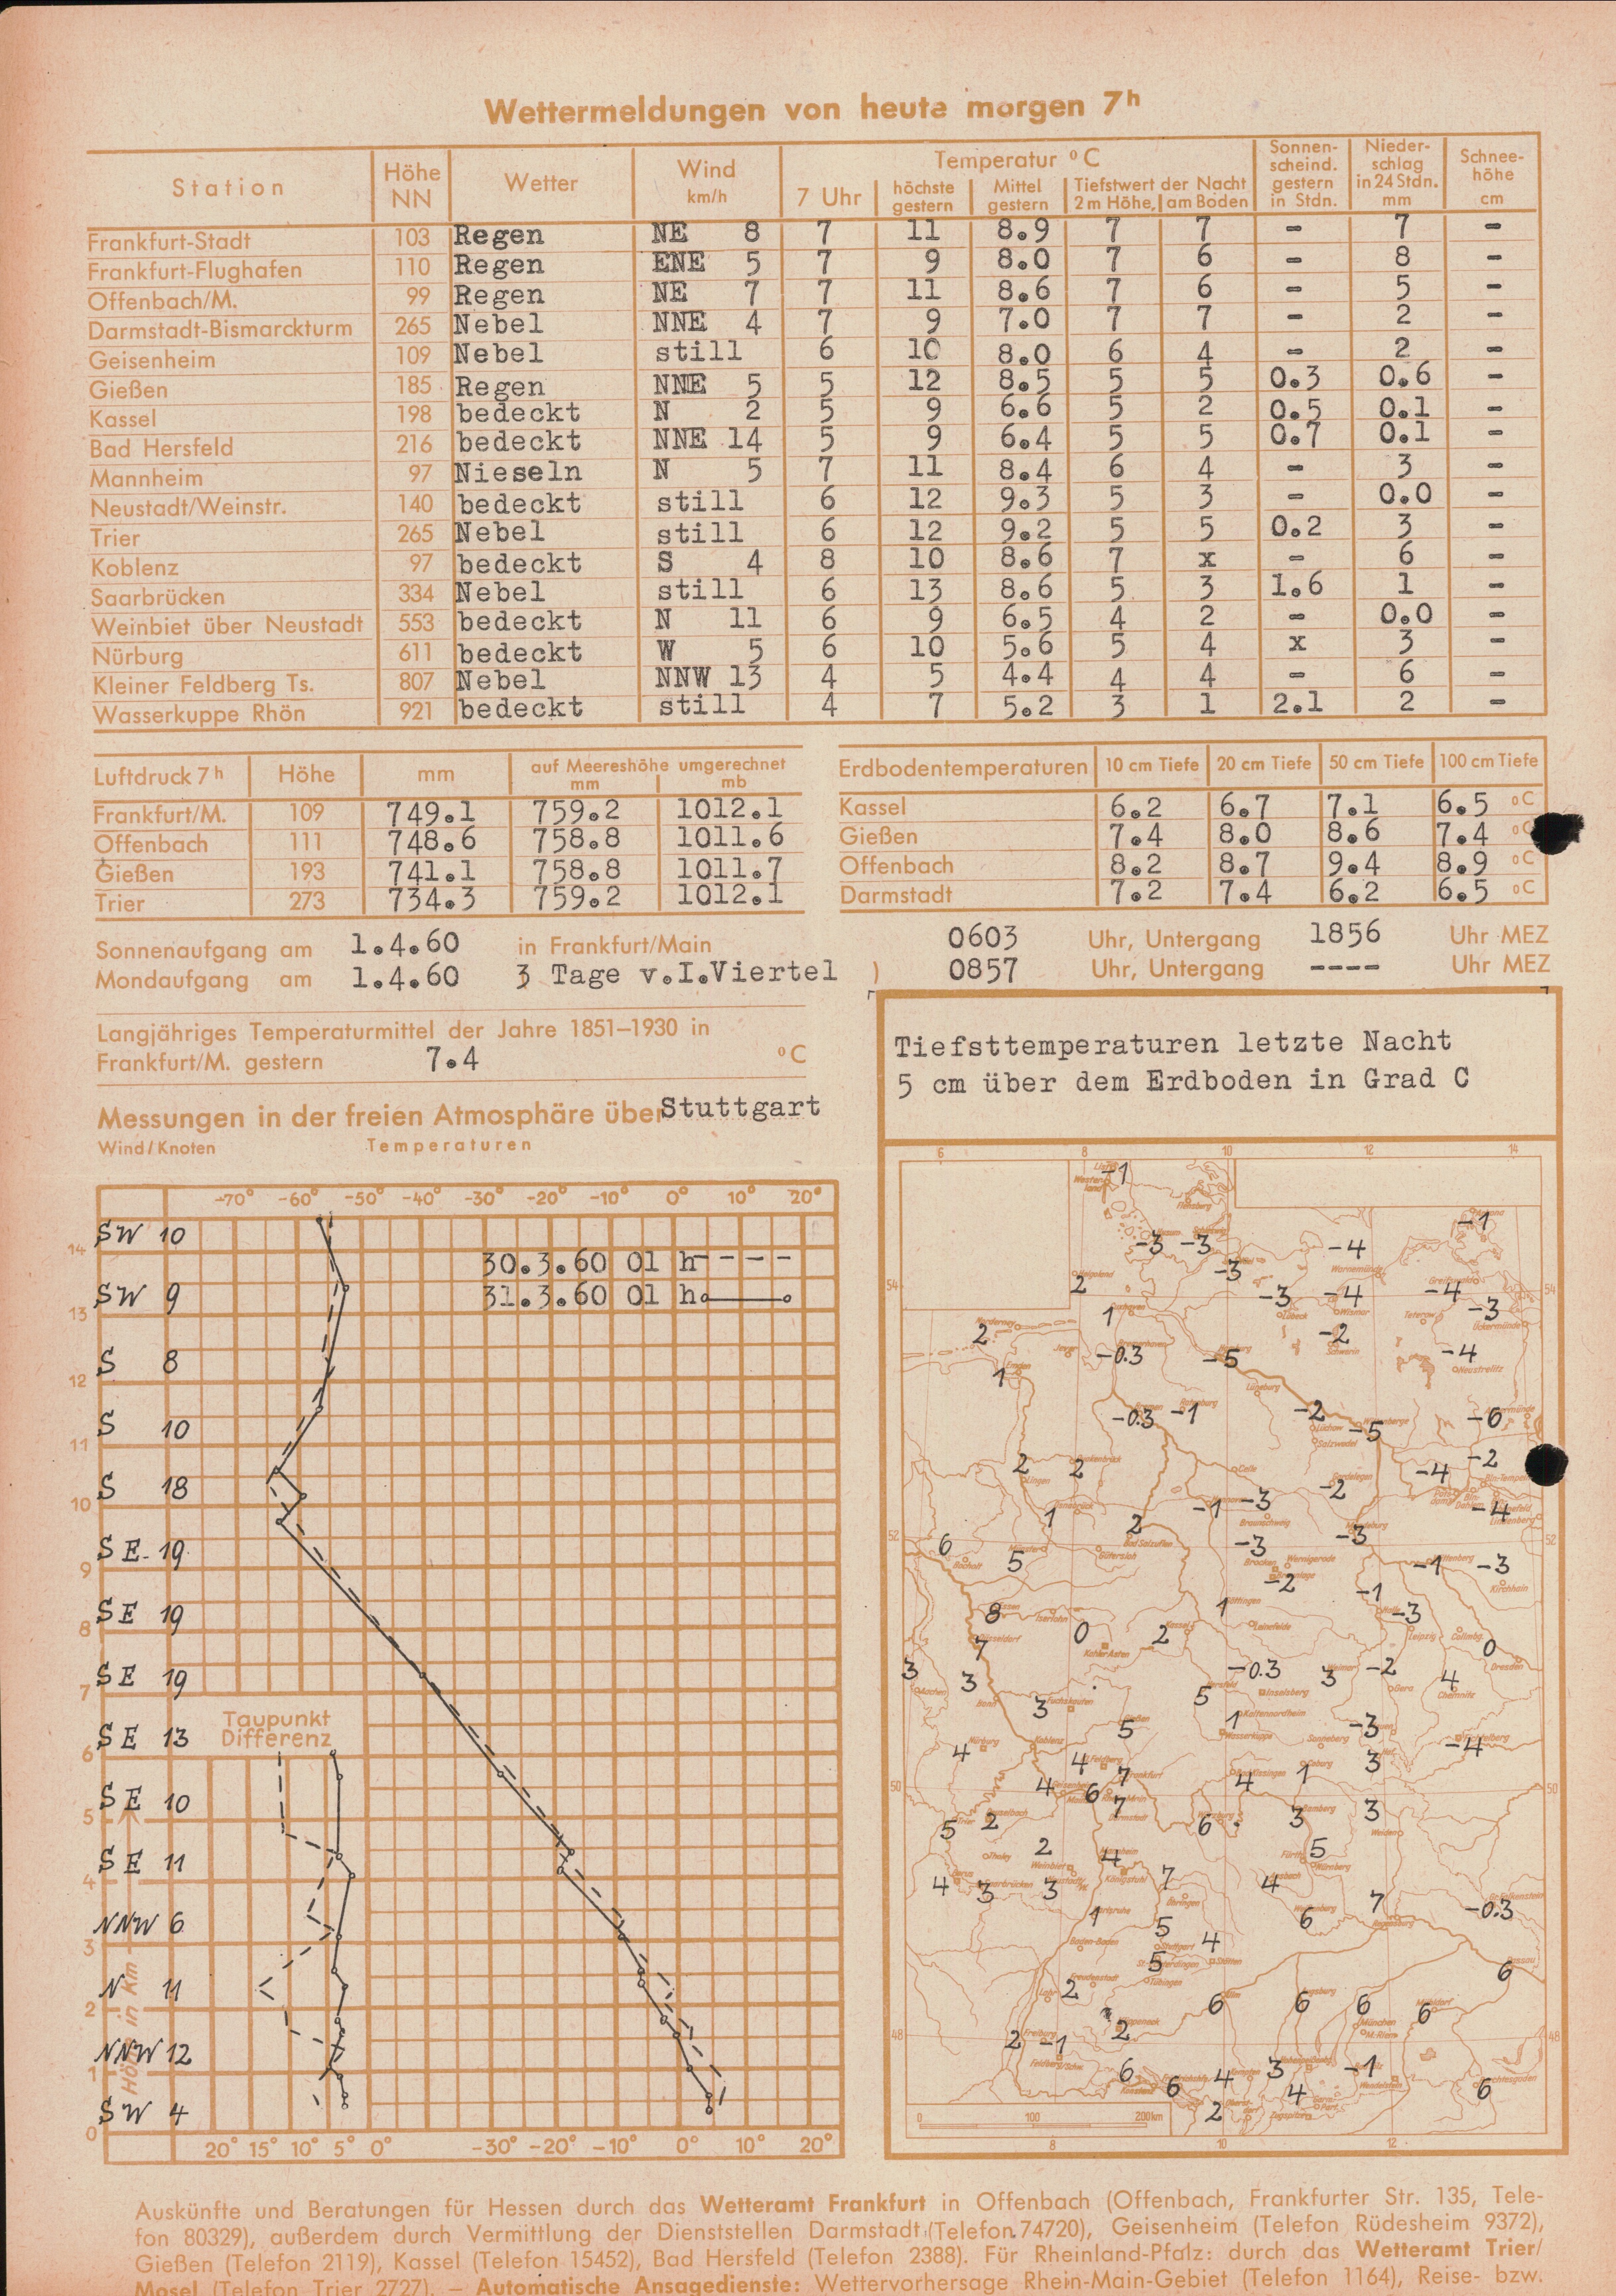 Wettermeldungen von heute morgen 7h
Station Höhe NN Wetter Wind km/h Temperatur °C Sonnenscheind. gestern in Stdn. Niederschlag in 24 Stdn. mm Schneehöhe cm
7 Uhr höchste gestern Mittel gestern Tiefstwert der Nacht 2 m Höhe, am Boden
Frankfurt-Stadt 103 Regen NE 8 7 11 8.9 7 7 - 7 -
Frankfurt-Flughafen 110 Regen ENE 5 7 9 8.0 7 6 - 8 -
Offenbach/M. 99 Regen NE 7 7 11 8.6 7 6 - 5 -
Darmstadt-Bismarckturm 265 Nebel NNE 4 7 9 7.0 7 7 - 2 -
Geisenheim 109 Nebel still 6 10 8.0 6 4 - 2 -
Gießen 185 Regen NNE 5 5 12 8.5 5 5 0.3 0.6 -
Kassel 198 bedeckt N 2 5 9 6.6 5 2 0.5 0.1 -
Bad Hersfeld 216 bedeckt NNE 14 5 9 6.4 5 5 0.7 0.1 -
Mannheim 97 Nieseln N 5 7 11 8.4 6 4 - 3 -
Neustadt/Weinstr. 140 bedeckt still 6 12 9.3 5 3 - 0.0 -
Trier 265 Nebel still 6 12 9.2 5 5 0.2 3 -
Koblenz 97 bedeckt S 4 8 10 8.6 7 x - 6 -
Saarbrücken 334 Nebel still 6 13 8.6 5 3 1.6 1 -
Weinbiet über Neustadt 553 bedeckt N 11 6 9 6.5 4 2 - 0.0 -
Nürburg 611 bedeckt W 5 6 10 5.6 5 4 x 3 -
Kleiner Feldberg Ts. 807 Nebel NNW 13 4 5 4.4 4 4 - 6 -
Wasserkuppe Rhön 921 bedeckt still 4 7 5.2 3 1 2.1 2 -
Luftdruck 7h Höhe mm auf Meereshöhe umgerechnet mm mb
Frankfurt/M. 109 749.1 759.2 1012.1
Offenbach 111 748.6 758.8 1011.6
Gießen 193 741.1 758.8 1011.7
Trier 273 734.3 759.2 1012.1
Erdbodentemperaturen 10 cm Tiefe 20 cm Tiefe 50 cm Tiefe 100 cm Tiefe
Kassel 6.2 6.7 7.1 6.5 °C
Gießen 7.4 8.0 8.6 7.4 °C
Offenbach 8.2 8.7 9.4 8.9 °C
Darmstadt 7.2 7.4 6.2 6.5 °C
Sonnenaufgang am 1.4.60 in Frankfurt/Main 0603 Uhr, Untergang 1856 Uhr MEZ
Mondaufgang am 1.4.60 3 Tage v.I.Viertel ) 0857 Uhr, Untergang ---- Uhr MEZ
Langjähriges Temperaturmittel der Jahre 1851–1930 in
Frankfurt/M. gestern 7.4 °C
Messungen in der freien Atmosphäre über Stuttgart
Wind/Knoten Temperaturen
-70° -60° -50° -40° -30° -20° -10° 0° 10° 20°
SW 10
14
30.3.60 01 h----
SW 9
31.3.60 01 h
13
S 8
12
S 10
11
S 18
10
SE 19
9
SE 19
8
SE 19
7
Taupunkt
Differenz
SE 13
6
SE 10
5
SE 11
4
NNW 6
3
N 11
2
NNW 12
1
SW 4
0
Höhe in km
20° 15° 10° 5° 0° -30° -20° -10° 0° 10° 20°
Tiefsttemperaturen letzte Nacht
5 cm über dem Erdboden in Grad C
6 8 10 12 14
-1
-1
-3 -3 -4
-3
2
-3 -4 -4 -3
1
2 -2
-0.3 -5 -4
1
-0.3 -1 -2 -5 -6
2 2 -4 -2
-1 -3 -2 -4
1 2 -3
6 5 -3 -1 -3
-2 -1
8 1 -3
7 0 2 0
3 3 -0.3 3 -2 4
3 5
5 1 -3
4 4 7 3 -4
4 6 7 4 1
5 2 6 3 3
2 4 5
4 3 3 7 4 7
1 5 4 6 -0.3
5 6
2 6 6 6 6
2 -1 2
6 6 4 3 -1 6
2 4
54 54
52 52
50 50
48 48
0 100 200 km
8 10 12
Auskünfte und Beratungen für Hessen durch das Wetteramt Frankfurt in Offenbach (Offenbach, Frankfurter Str. 135, Tele-
fon 80329), außerdem durch Vermittlung der Dienststellen Darmstadt (Telefon 74720), Geisenheim (Telefon Rüdesheim 9372),
Gießen (Telefon 2119), Kassel (Telefon 15452), Bad Hersfeld (Telefon 2388). Für Rheinland-Pfalz: durch das Wetteramt Trier/
Mosel (Telefon Trier 2727). — Automatische Ansagedienste: Wettervorhersage Rhein-Main-Gebiet (Telefon 1164), Reise- bzw.